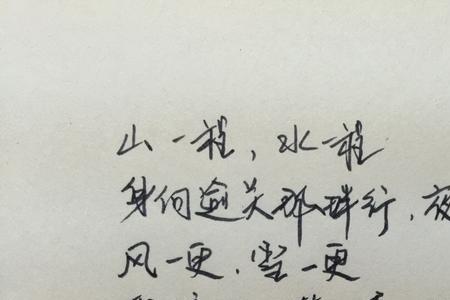 山一程，水一程
身向逾关那畔行，夜
风一更，雪一更